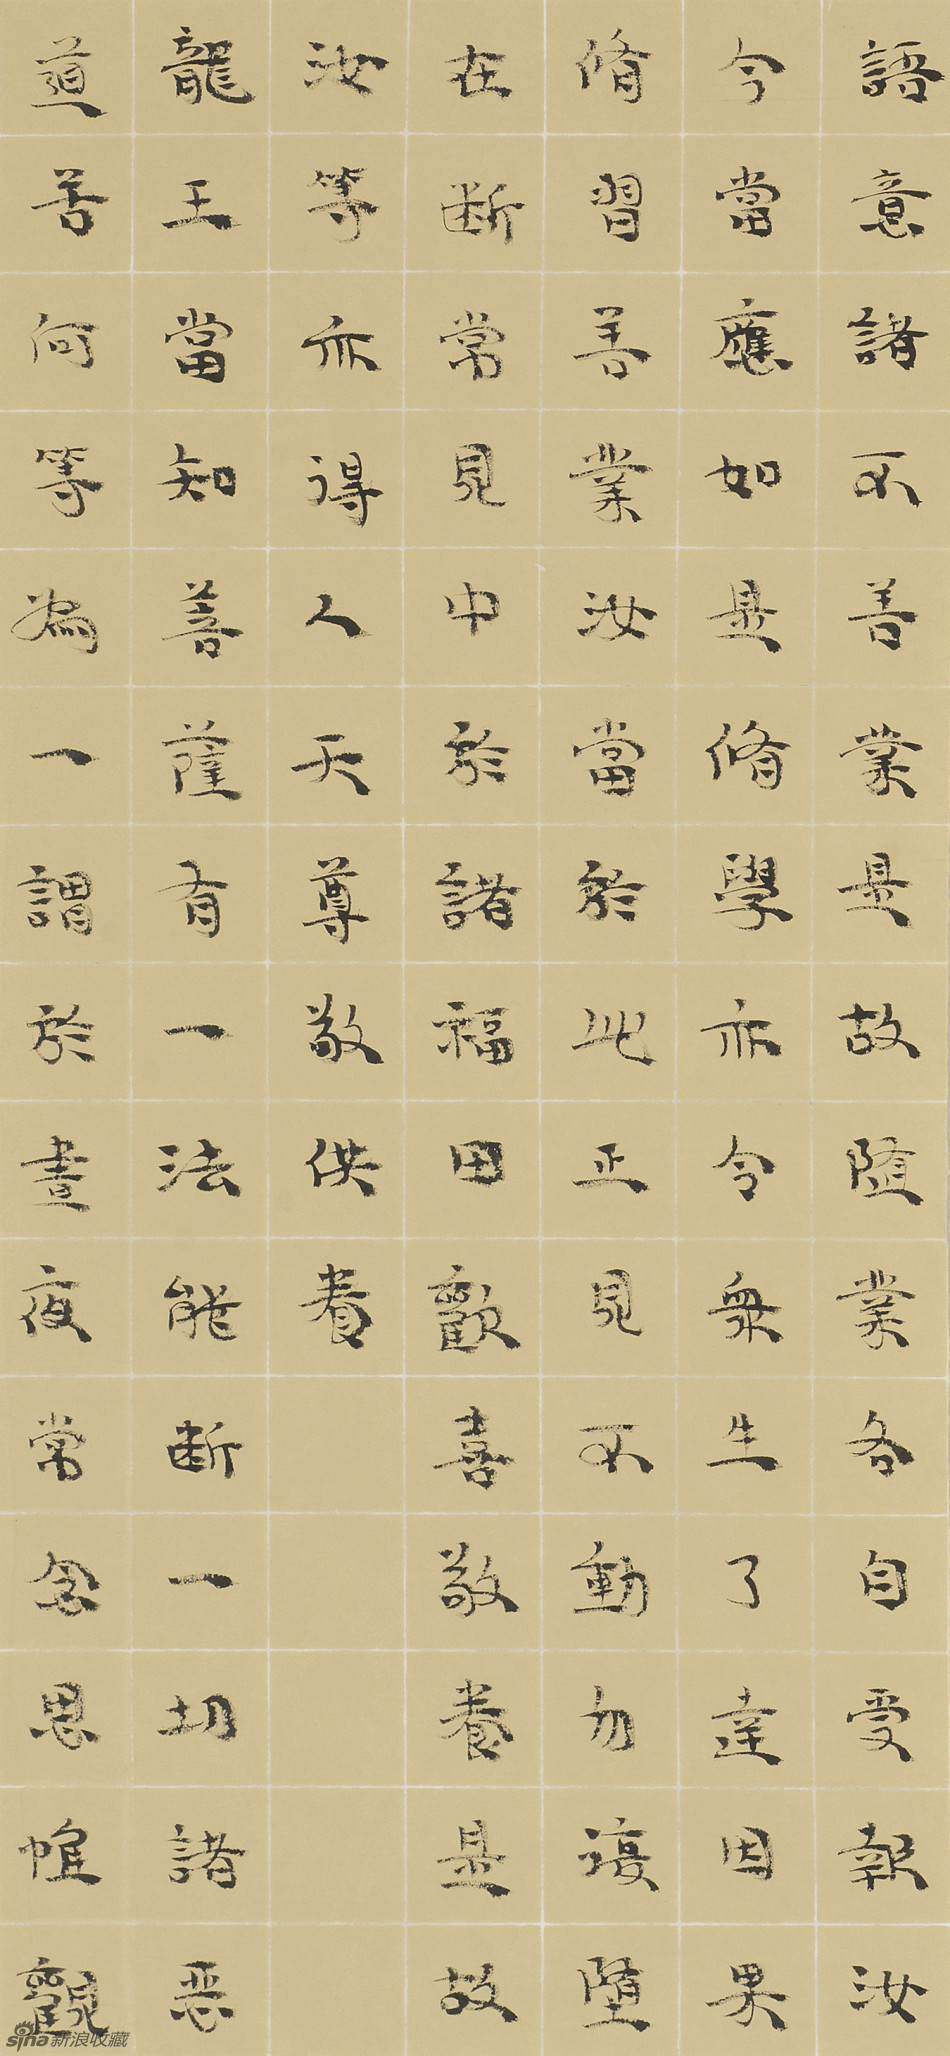 語意諸不善業是故隨業各自受報汝
今當應如是脩學亦令衆生了達因果
脩習善業汝當於此正見不動勿復墮
在斷常見中於諸福田歡喜敬養是故
汝等亦得人天尊敬供養
龍王當知菩薩有一法能断一切諸惡
道苦何等為一謂於晝夜常念思惟觀
sina新浪收藏